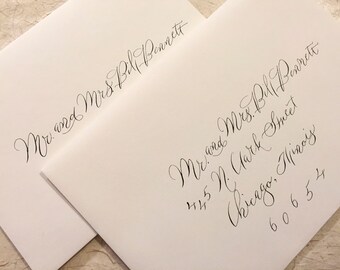 Mr. and Mrs. Bill Bennett
Mr. and Mrs. Bill Bennett
445 N. Clark Street
Chicago, Illinois
60654